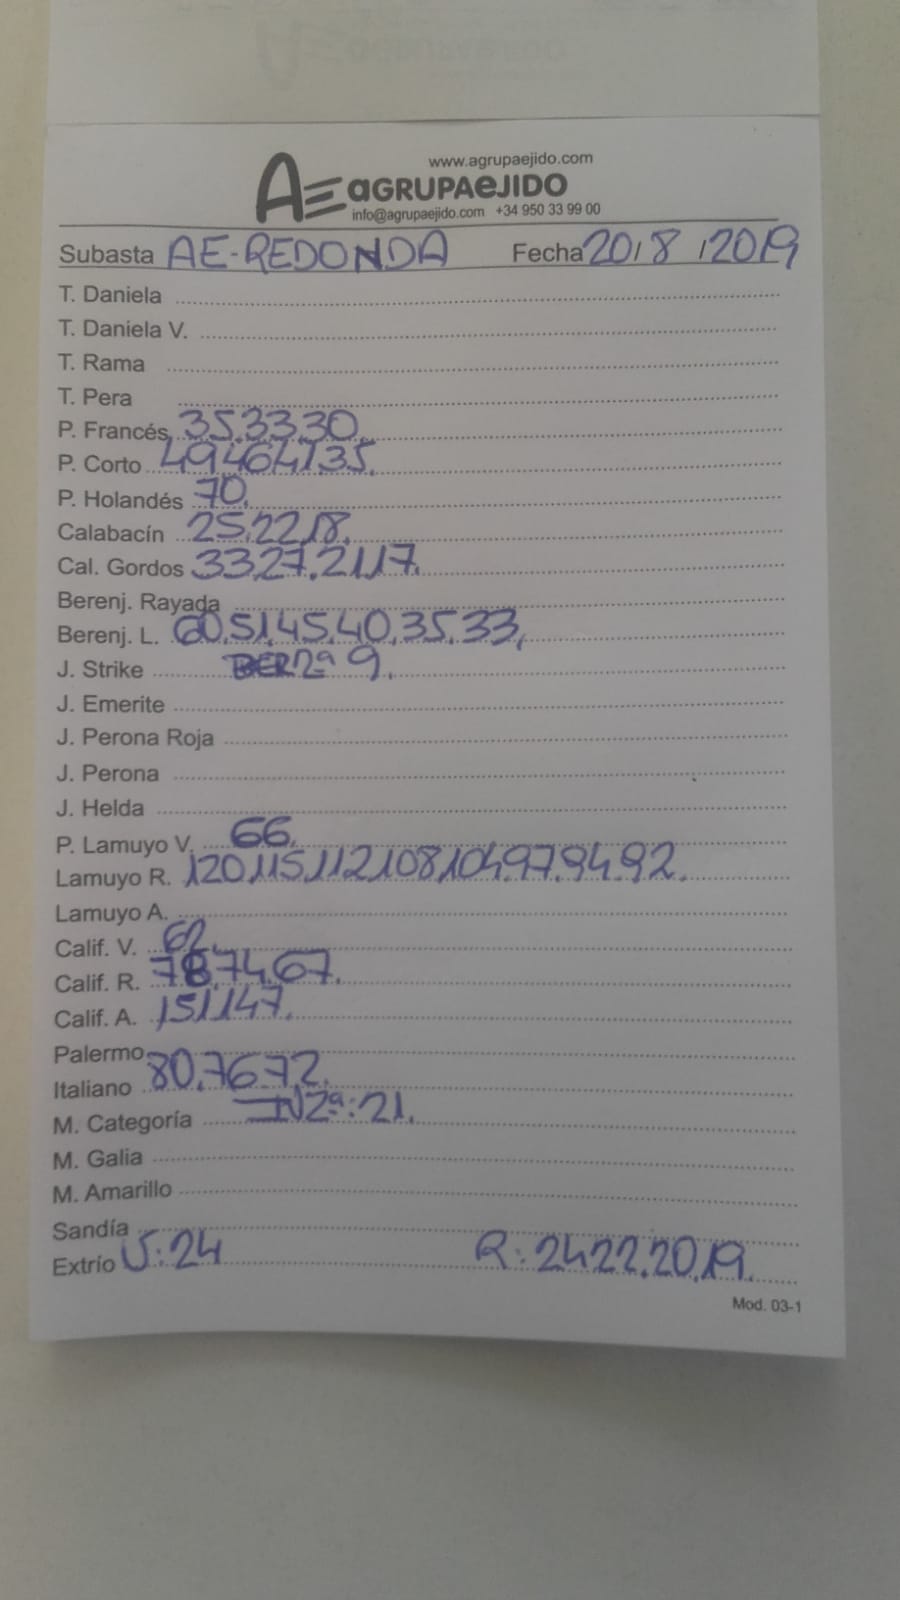 www.agrupaejido.com
AE aGRUPAeJIDO
info@agrupaejido.com +34 950 33 99 00
Subasta AE-REDONDA Fecha 20/8/2019
T. Daniela
T. Daniela V.
T. Rama
T. Pera
P. Francés 35.33.30.
P. Corto 49.46.41.35.
P. Holandés 70.
Calabacín 25.22.18.
Cal. Gordos 33.27.21.17.
Berenj. Rayada
Berenj. L. 60.51.45.40.35.33.
J. Strike BER 2ª 9.
J. Emerite
J. Perona Roja
J. Perona
J. Helda
P. Lamuyo V. 66.
Lamuyo R. 120.115.112.108.104.97.94.92.
Lamuyo A.
Calif. V. 62.
Calif. R. 78.74.67.
Calif. A. 151.147.
Palermo
Italiano 80.76.72.
M. Categoría IN2ª: 21.
M. Galia
M. Amarillo
Sandía
Extrío V: 24 R: 24.22.20.19.
Mod. 03-1